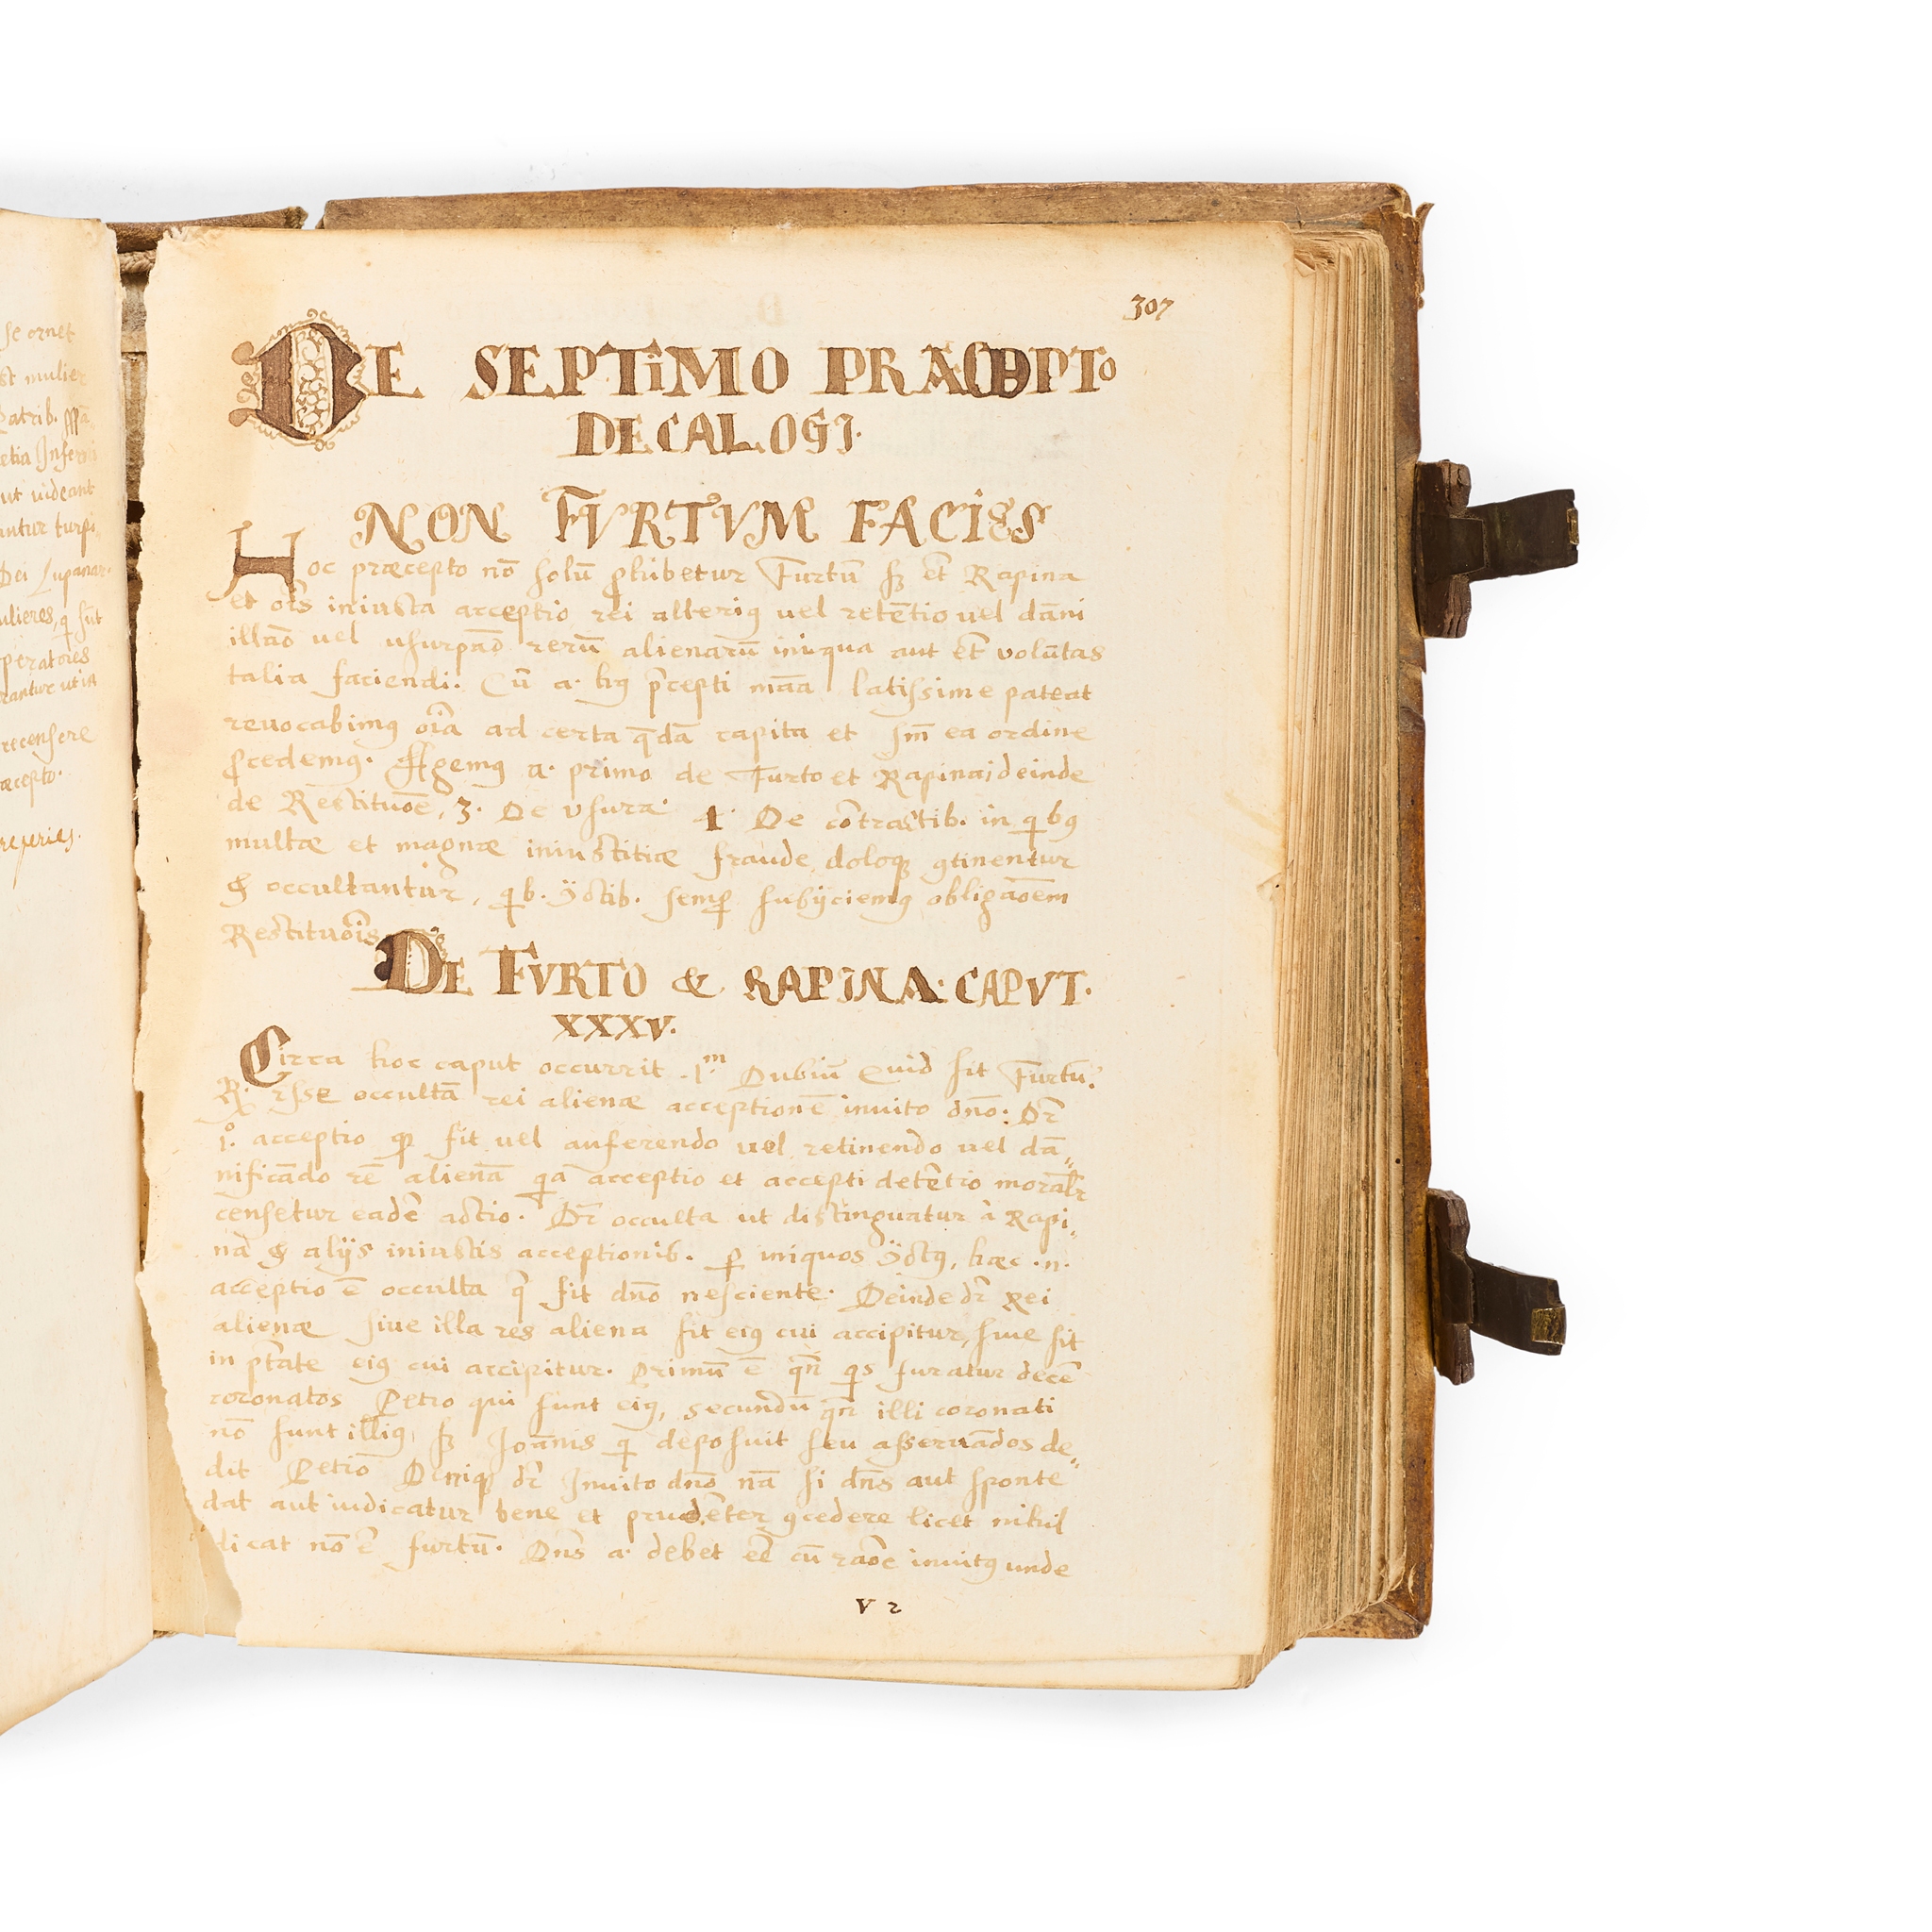 se ornet
st mulier
Patrib.
ut uideant
antur turpi
Dei Lupanar
ulieres, q sūt
peratores
rantur ut in
recensere
æcepto.
reperies.
307
DE SEPTiMO PRÆCEPTo
DECALOGI.
NON FVRTVM FACiES
Hoc præcepto nō solū ꝓhibetur Furtū sꝫ et̄ Rapina
et oīs iniusta acceptio rei alteriꝯ uel retētio uel dāni
illaō uel usurpaō rerū alienarū iniqua aut et̄ volūtas
talia faciendi. Cū a. hꝯ p̄cepti māa latissime pateat
reuocabimꝯ oīa ad certa q̄dā capita et sm̄ ea ordine
ꝓcedemꝯ. Agemꝯ a. primo de Furto et Rapina, deinde
de Restituōe, 3. De vsura. 4. De cōtractib. in qbꝯ
multæ et magnæ iniustitiæ fraude doloqꝫ ꝯtinentur
& occultantur, qb. ōctib. semꝑ subijciemꝯ obligaōem
Restituōis
DE FVRTO & RAPINA: CAPVT.
XXXV.
Circa hoc caput occurrit .1.m Dubiū Quid sit Furtū?
R. esse occultā rei alienæ acceptionē inuito dn̄o: Dr̄
1.o acceptio qꝫ fit uel auferendo uel retinendo uel dā„
nificādo rē alienā qa acceptio et accepti detētio moralr̄
censetur eadē actio. Dr̄ occulta ut distinguatur à Rapi„
na & alijs iniustis acceptionib. ꝑ iniquos ōctꝯ, hæc .n.
acceptio ē occulta q̄ fit dn̄o nesciente. Deinde dr̄ Rei
alienæ siue illa res aliena sit eiꝯ cui accipitur, siue sit
in ptāte eiꝯ cui accipitur. Primū ē qn̄ qs furatur decē
coronatos Petro qui sunt eiꝯ, secundū qn̄ illi coronati
nō sunt illiꝯ, sꝫ Joānis q deposuit seu asseruādos de„
dit Petro Deniqꝫ dr̄ Inuito dn̄o nā si dn̄s aut sponte
dat aut iudicatur bene et prudēter ꝯcedere licet nihil
dicat nō ē furtū. Dn̄s a. debet eē cū raōe inuitꝯ unde
V 2